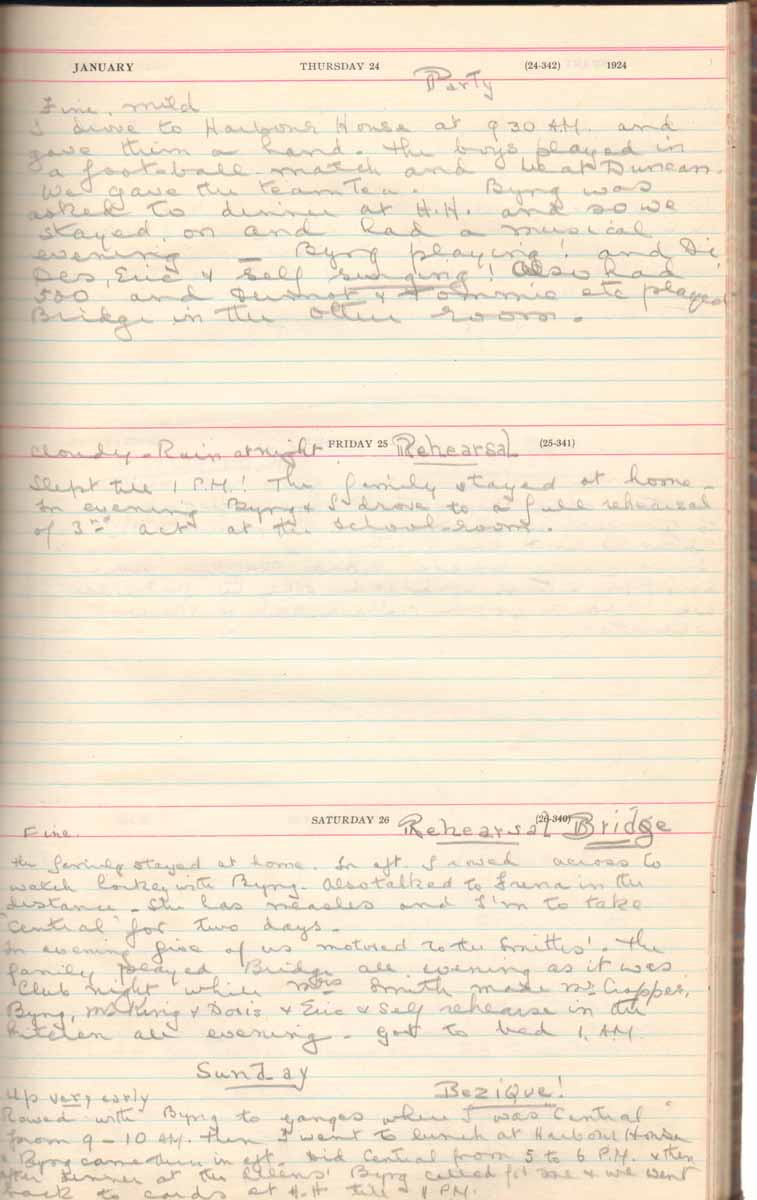 JANUARY THURSDAY 24 (24-342) 1924
Party
Fine, mild
I drove to Harbour House at 9 30 A.M. and
gave them a hand. The boys played in
a football match and beat Duncan.
We gave the team Tea. Byng was
asked to dinner at H.H. and so we
stayed on and had a musical
evening — Byng playing! and Di
Des, Eric & Self singing! Also had
500 and Dermot & Tommie etc played
Bridge in the other room.
FRIDAY 25 Rehearsal (25-341)
Cloudy - Rain at night
Slept till 1 P.M.! The family stayed at home -
In evening Byng & I drove to a full rehearsal
of 3rd act at the school-room.
SATURDAY 26 Rehearsal (26-340) Bridge
Fine.
The family stayed at home. In aft. I rowed across to
watch hockey with Byng. Also talked to Irena in the
distance - She has measles and I'm to take
"Central" for two days.
In evening five of us motored to the Smiths'. The
family played Bridge all evening as it was
Club night while Mrs Smith made Mr Cropper,
Byng, Mr King & Doris & Eric & Self rehearse in the
kitchen all evening. Got to bed 1 A.M.
Sunday
Up very early Bezique!
Rowed with Byng to Ganges where I was "Central"
from 9 - 10 A.M. Then I went to lunch at Harbour House
& Byng came there in aft. Did Central from 5 to 6 P.M. & then
after dinner at the Byng called for me & we went
back to cards at H.H. till P.M.